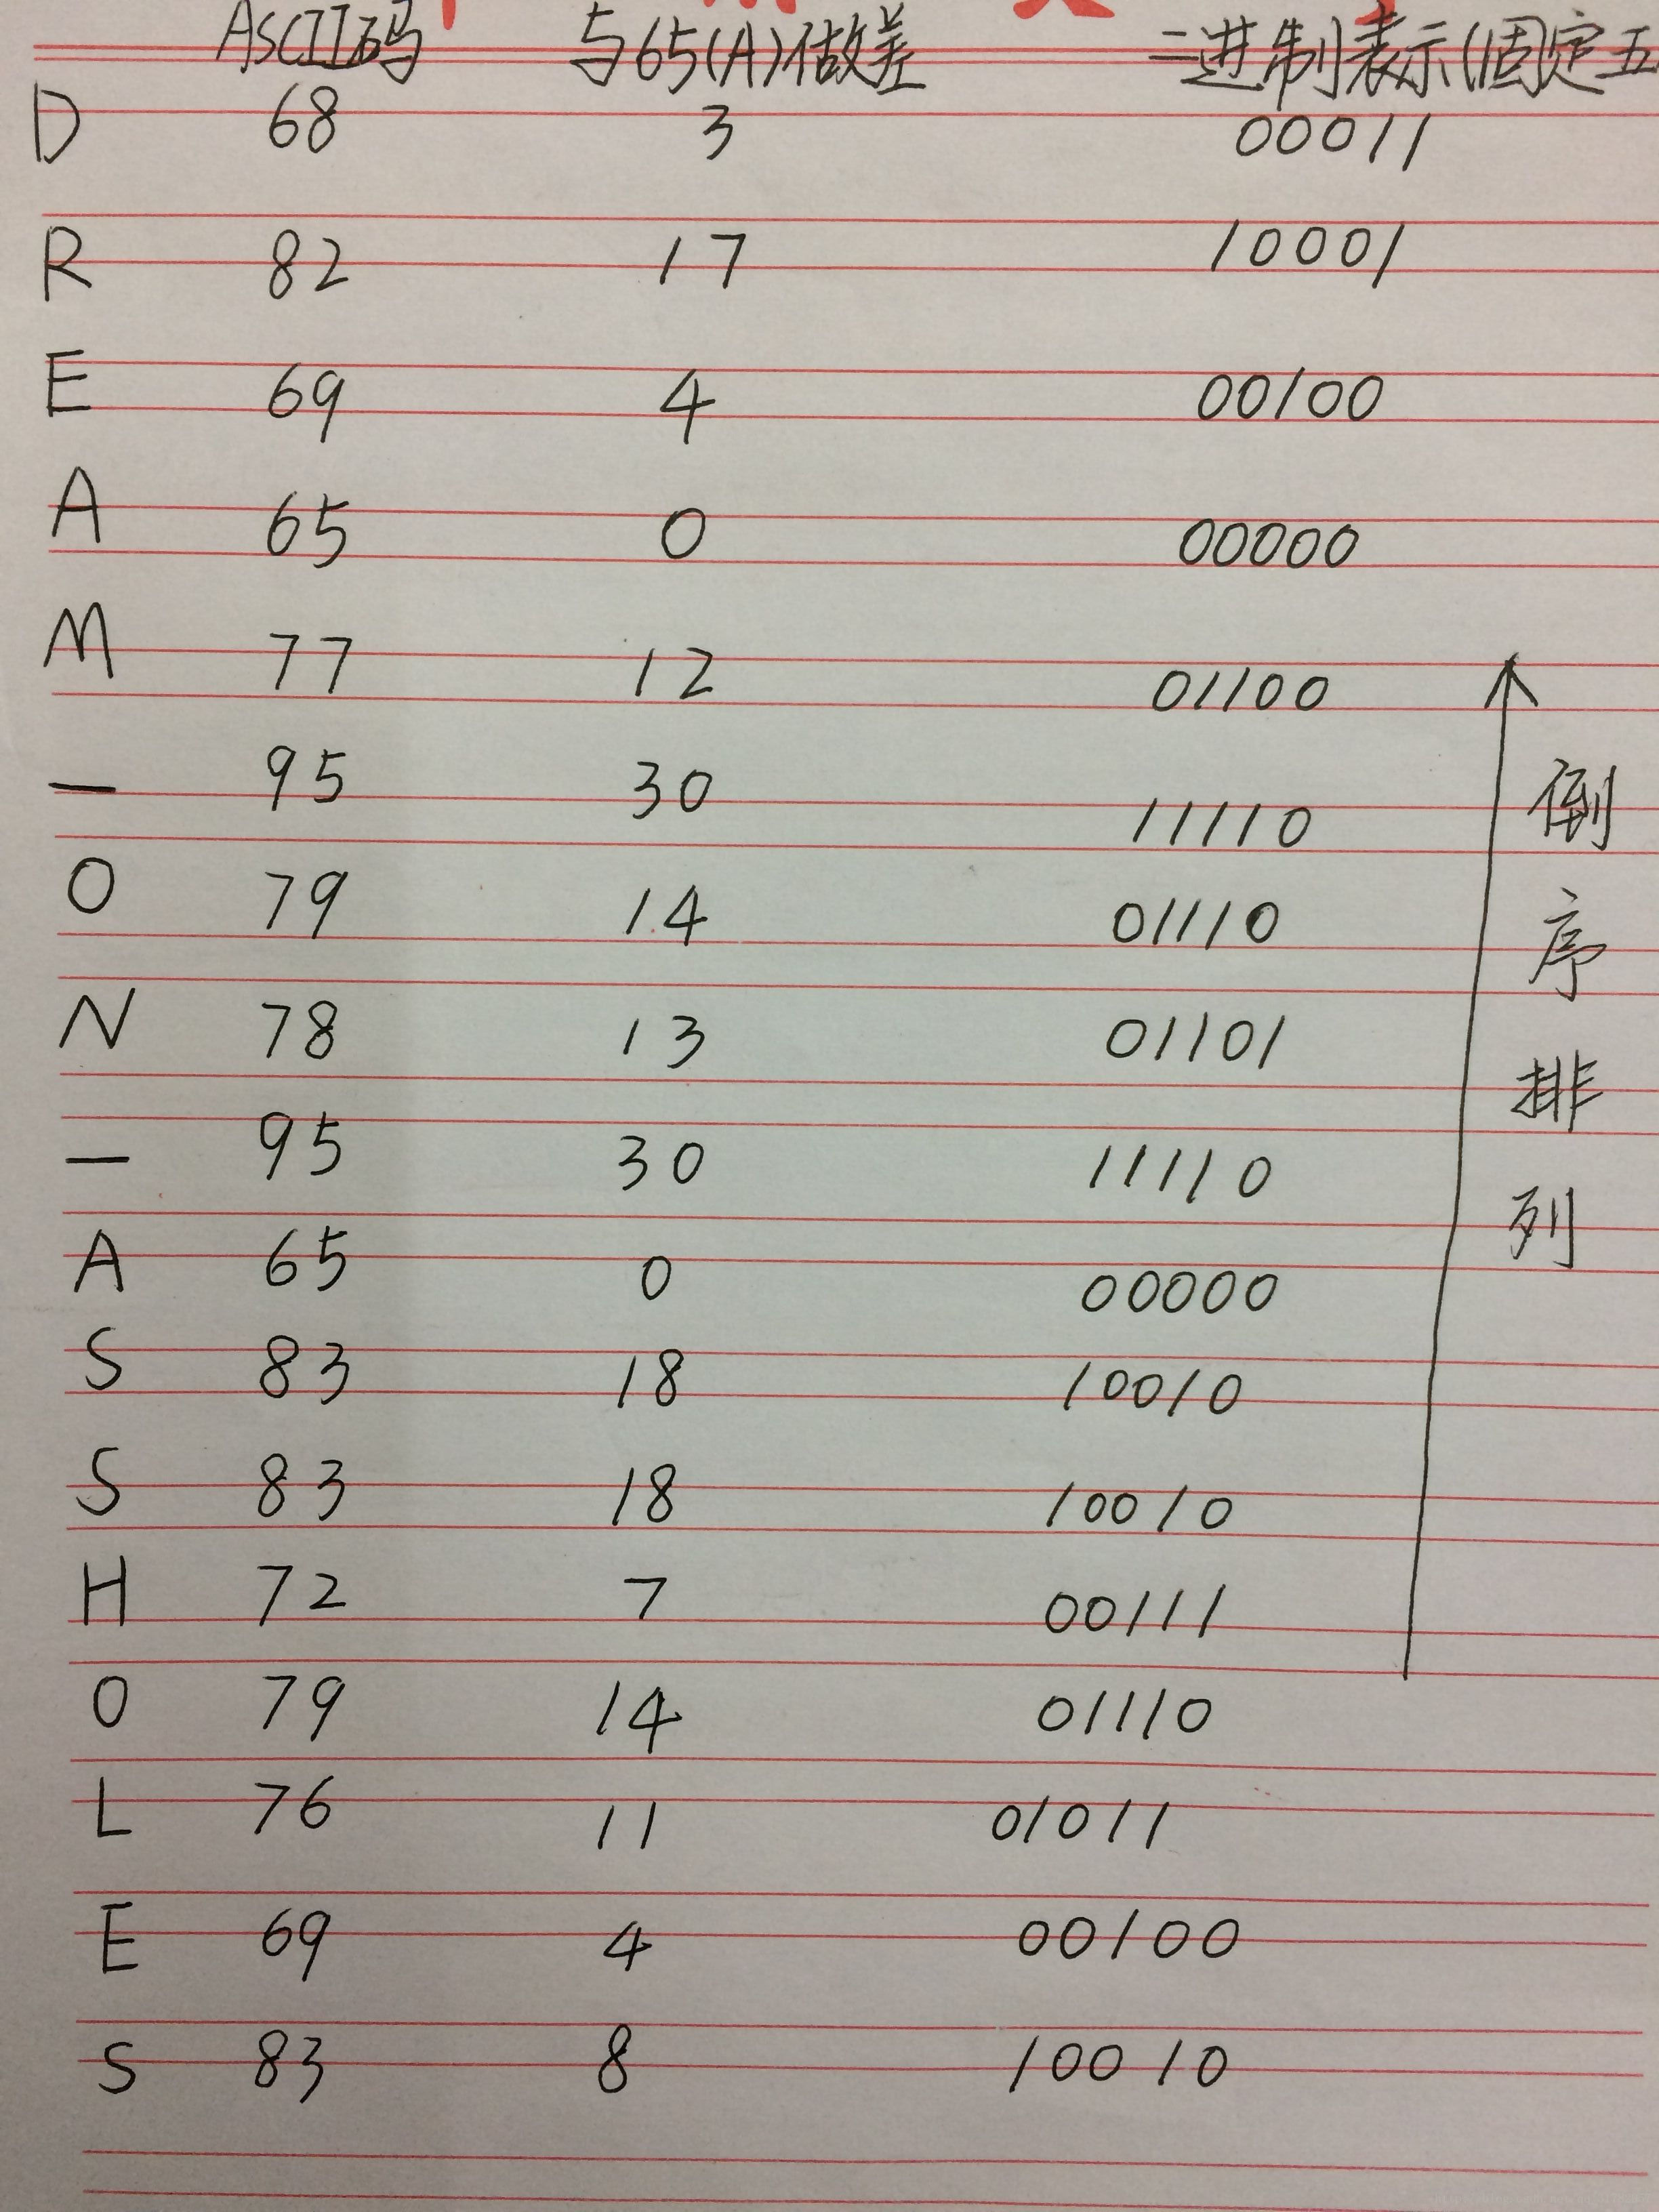 ASCII码 与65(A)做差 二进制表示(固定五
D 68 3 00011
R 82 17 10001
E 69 4 00100
A 65 0 00000
M 77 12 01100
_ 95 30 11110
O 79 14 01110
N 78 13 01101
_ 95 30 11110
A 65 0 00000
S 83 18 10010
S 83 18 10010
H 72 7 00111
O 79 14 01110
L 76 11 01011
E 69 4 00100
S 83 8 10010
倒序排列